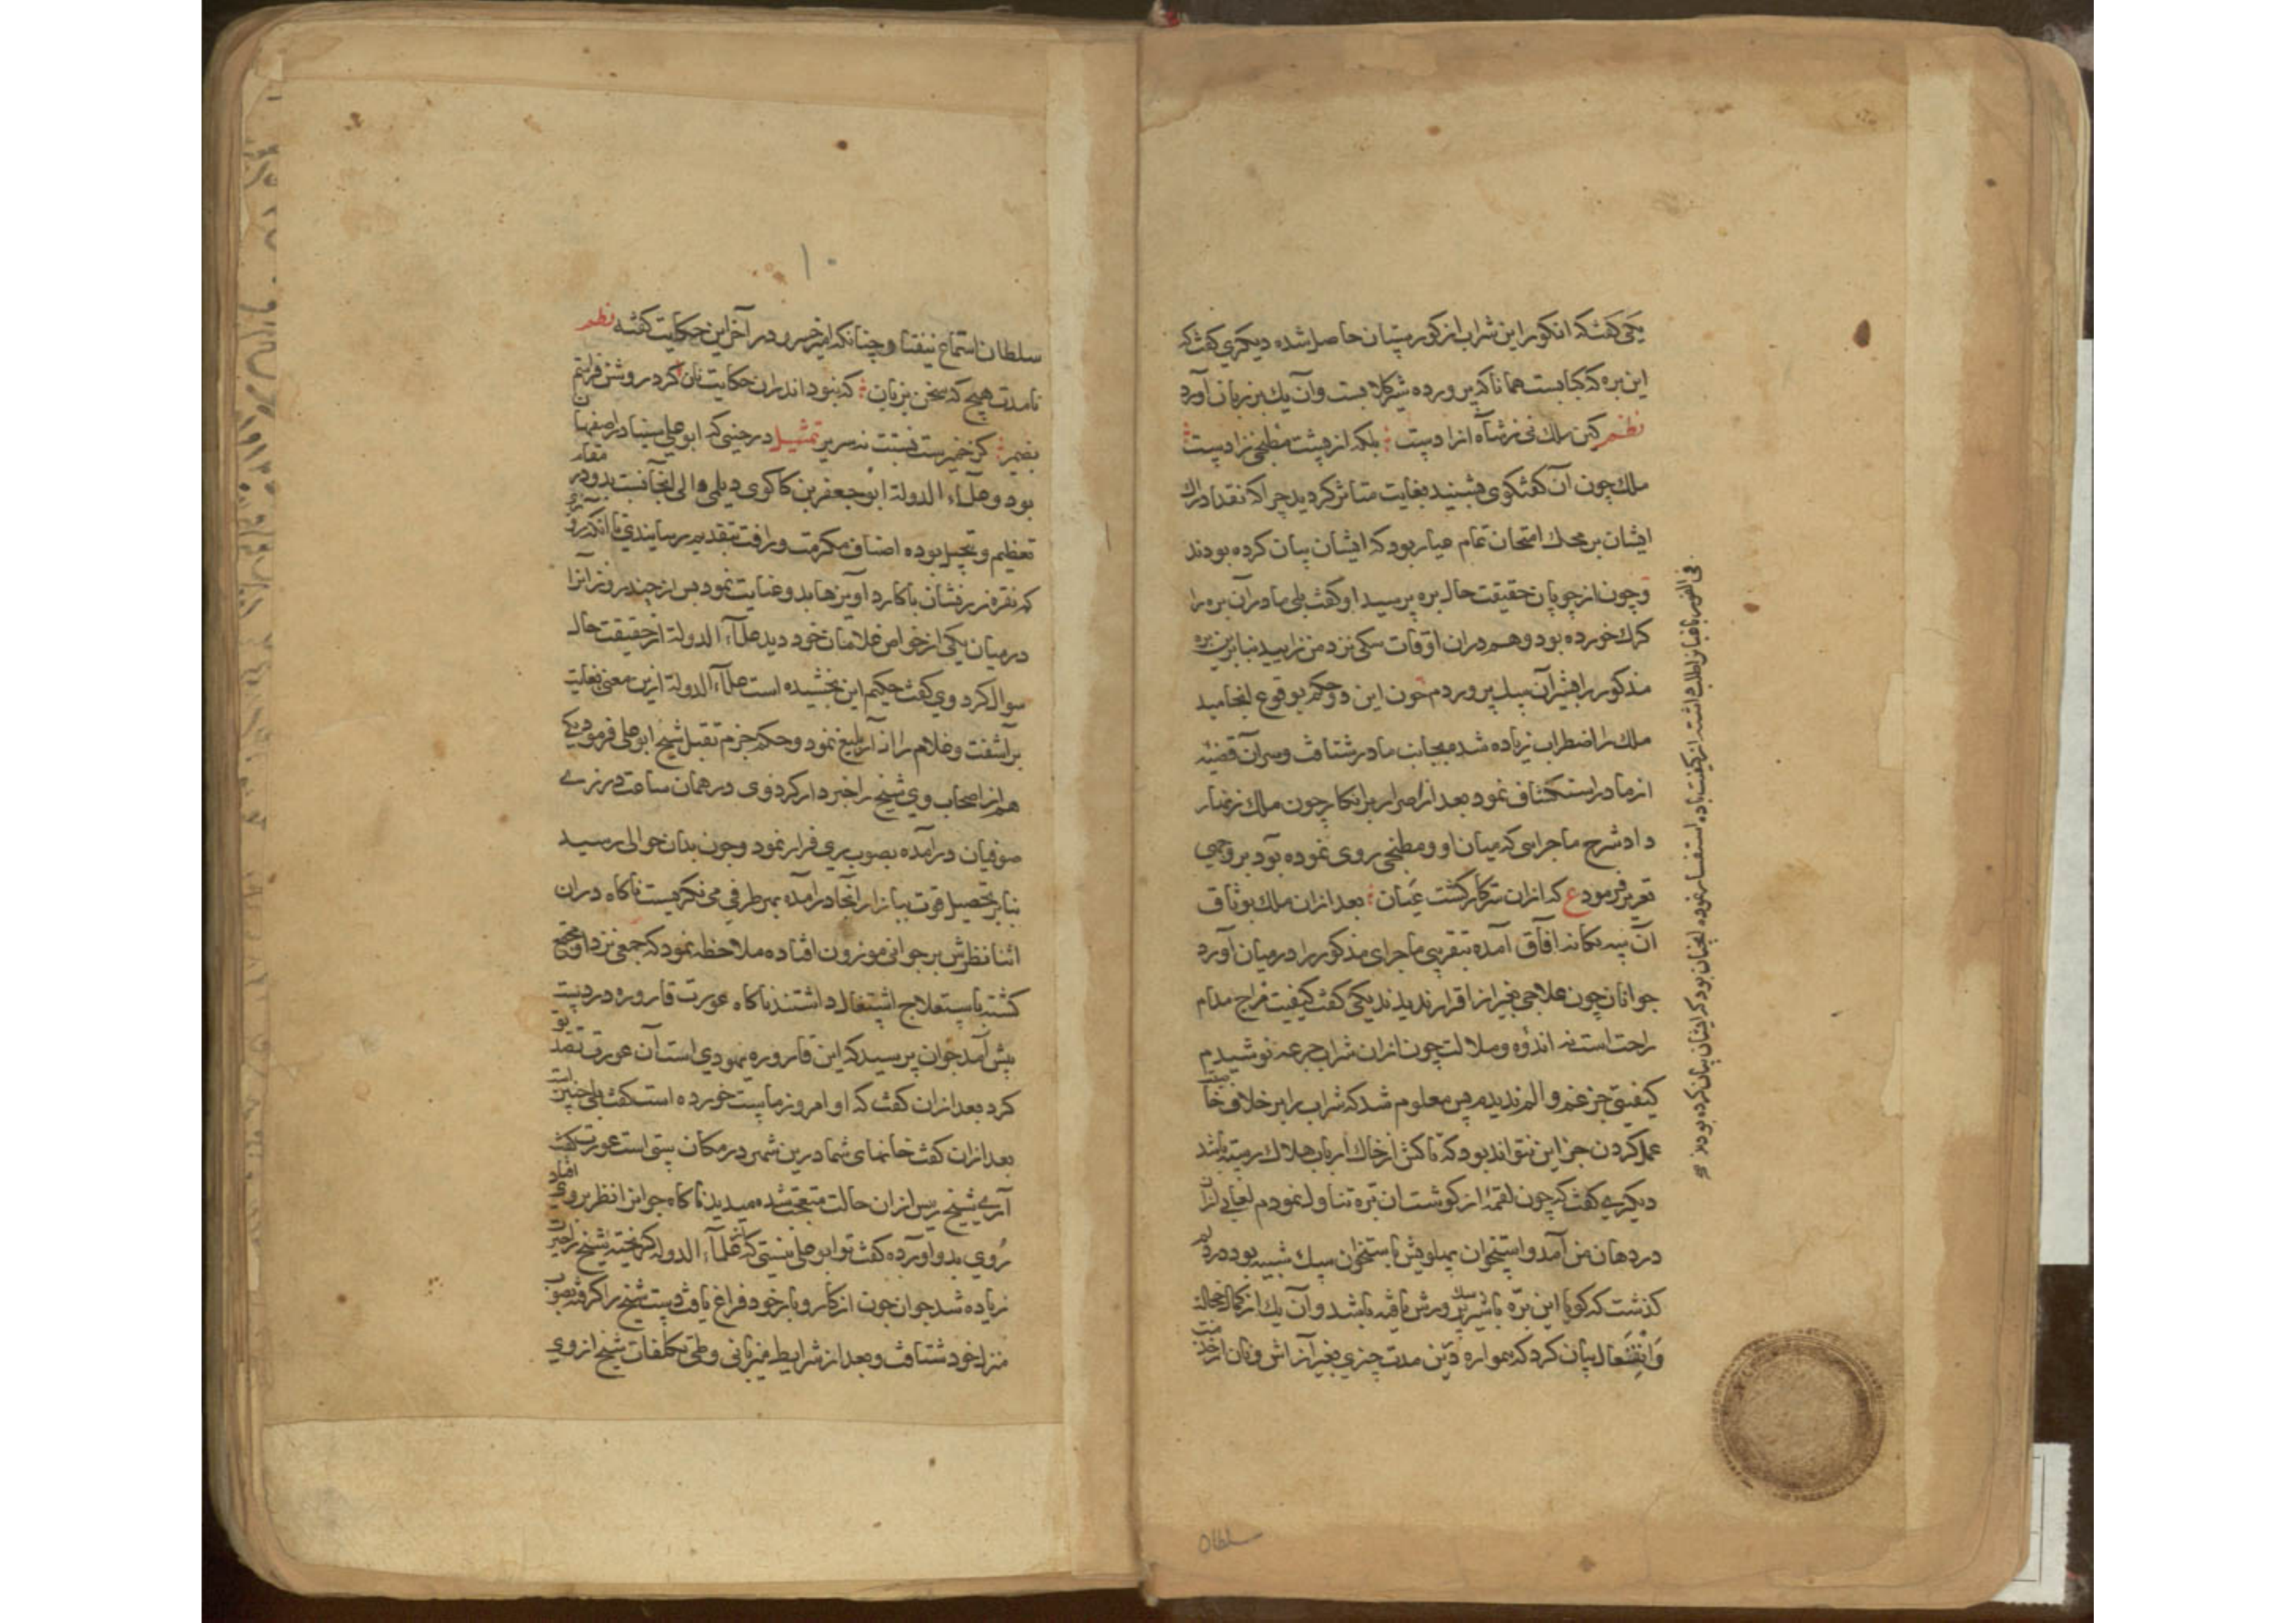 یکی گفت که انکور این شراب از کورستان حاصل شده دیکری گفت که
این بره که کبابست همانا که پرورده شیر کلابست و آن یک بر زبان آورد
نظم کین ملک نی ز شاه آزادست بلکه از پشت مطبخی زادست
ملک چون آن گفتگوی بشنید بغایت متاثر کردید چرا که نقد ادراک
ایشان بر محک امتحان تمام عیار بود که ایشان بیان کرده بودند
و چون از چوپان حقیقت حال بره پرسید او گفت بلی مادر آن بره را
کرک خورده بود و هم در آن اوقات سکی نزد من زایید بنابرین بره
مذکور را بشیر آن سک پروردم چون این دو حکم بوقوع انجامید
ملک را اضطراب زیاده شد بجانب مادر شتافت و سر آن قضیه
از مادر استکشاف نمود بعد از اصرار بر انکار چون ملک زنهار
داد شرح ماجرایی که میان او و مطبخی روی نموده بود بر وجهی
تعریر فرمود ع که از آن ترکار کشت عیان بعد از آن ملک بوثاق
آن سه یکانه آفاق آمده بتقریبی ماجرای مذکور را در میان آورد
جوانان چون علاجی بغیر از اقرار ندیدند یکی گفت کیفیت مزاج مدام
راحت است نه اندوه و ملالت چون از آن شراب جرعه نوشیدم
کیفیتی جز غم و الم ندیدم پس معلوم شد که شراب را بر خلاف خاصیت
عمل کردن جز این نتواند بود که تاکش از خاک ارباب هلاک رسته باشد
دیکری گفت که چون لقمه از کوشت آن بره تناول نمودم لعابی از آن
در دهان من آمد و استخوان پهلویش باستخوان سک شبیه بود در دلم
کذشت که کویا این بره باشیر سک پرورش یافته باشد و آن یک از کمال خجالت
و انفعال بیان کرد که همواره درین مدت چیزی بغیر از آش و نان
فی الفور باغبانرا طلب داشته از کیفیت باده استفسار نموده همچنان بود که ایشان بیان کرده بودند
سلطان
۱۰
سلطان استماع نیفتاد و چنانکه امیر خسرو در آخر این حکایت گفته نظم
نامدت هیچ که سخن بزبان که نبود اندران حکایت نان کرد روشن فراستم
بضمیر کز خمیرست نسبتت نه سریر تمثیل در حینی که ابو علی سینا در اصفهان
بود و علاء الدوله ابو جعفر بن کاکوی دیلمی والی آنجا نسبت بدو در مقام
تعظیم و تبجیل بوده اصناف مکرمت و رافت بتقدیم رسانیدی تا آنکه روزی
که نقره زر فشان با کارد آویزها بدو عنایت نمود پس از چند روز آنرا
در میان یکی از خواص غلامان خود دید علاء الدوله از حقیقت حال
سوال کرد وی گفت حکیم این بخشیده است علاء الدوله ازین معنی بغایت
برآشفت و غلام را ایذاء بلیغ نمود و حکم جزم بقتل شیخ ابو علی فرمود یکی
هم از اصحاب وی شیخ را خبردار کرد وی در همان ساعت در زی
صوفیان درآمده بصوب ری فرار نمود و چون بدان حوالی رسید
بنابر تحصیل قوت ببازار آنجا درآمده بهر طرفی می نکریست ناکاه در آن
اثنا نظرش بر جوانی موزون افتاده ملاحظه نمود که جمعی نزد او مجتمع
کشته باستعلاج اشتغال داشتند ناکاه عورت قاروره در دست
پیش آمد جوان پرسید که این قاروره یهودی است آن عورت تصدیق
کرد بعد از آن گفت که او امروز ماست خورده است گفت بلی چنین است
بعد از آن گفت خانهای شما درین شهر در مکان پستی است عورت گفت
آری شیخ رئیس از آن حالت متعجب شده میدید ناکاه جوانرا نظر بر وی افتاد
روی بدو آورده گفت تو ابو علی نیستی که از علاء الدوله کریخته شیخ را تحیر
زیاده شد جوان چون از کار و بار خود فراغ یافت دست شیخ را کرفته بصوب
منزل خود شتافت و بعد از شرایط میزبانی و طی تکلفات شیخ از وی